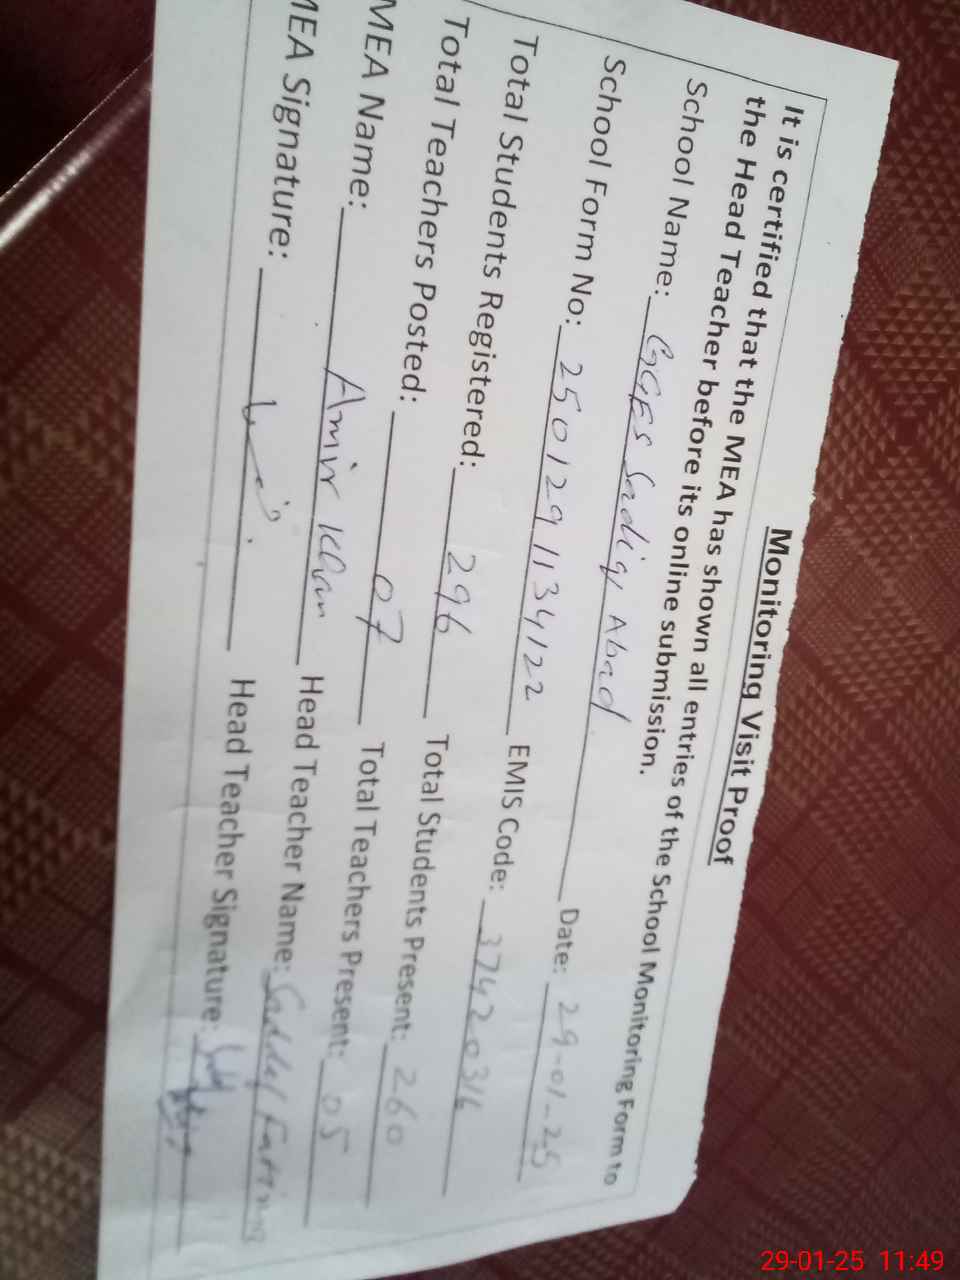 Monitoring Visit Proof
It is certified that the MEA has shown all entries of the School Monitoring Form to
the Head Teacher before its online submission.
School Name: GGES Sadiq Abad Date: 29-01-25
School Form No: 2501291134122 EMIS Code: 37420316
Total Students Registered: 296 Total Students Present: 260
Total Teachers Posted: 07 Total Teachers Present: 05
MEA Name: Amir Khan Head Teacher Name:
MEA Signature: Head Teacher Signature:
29-01-25 11:49